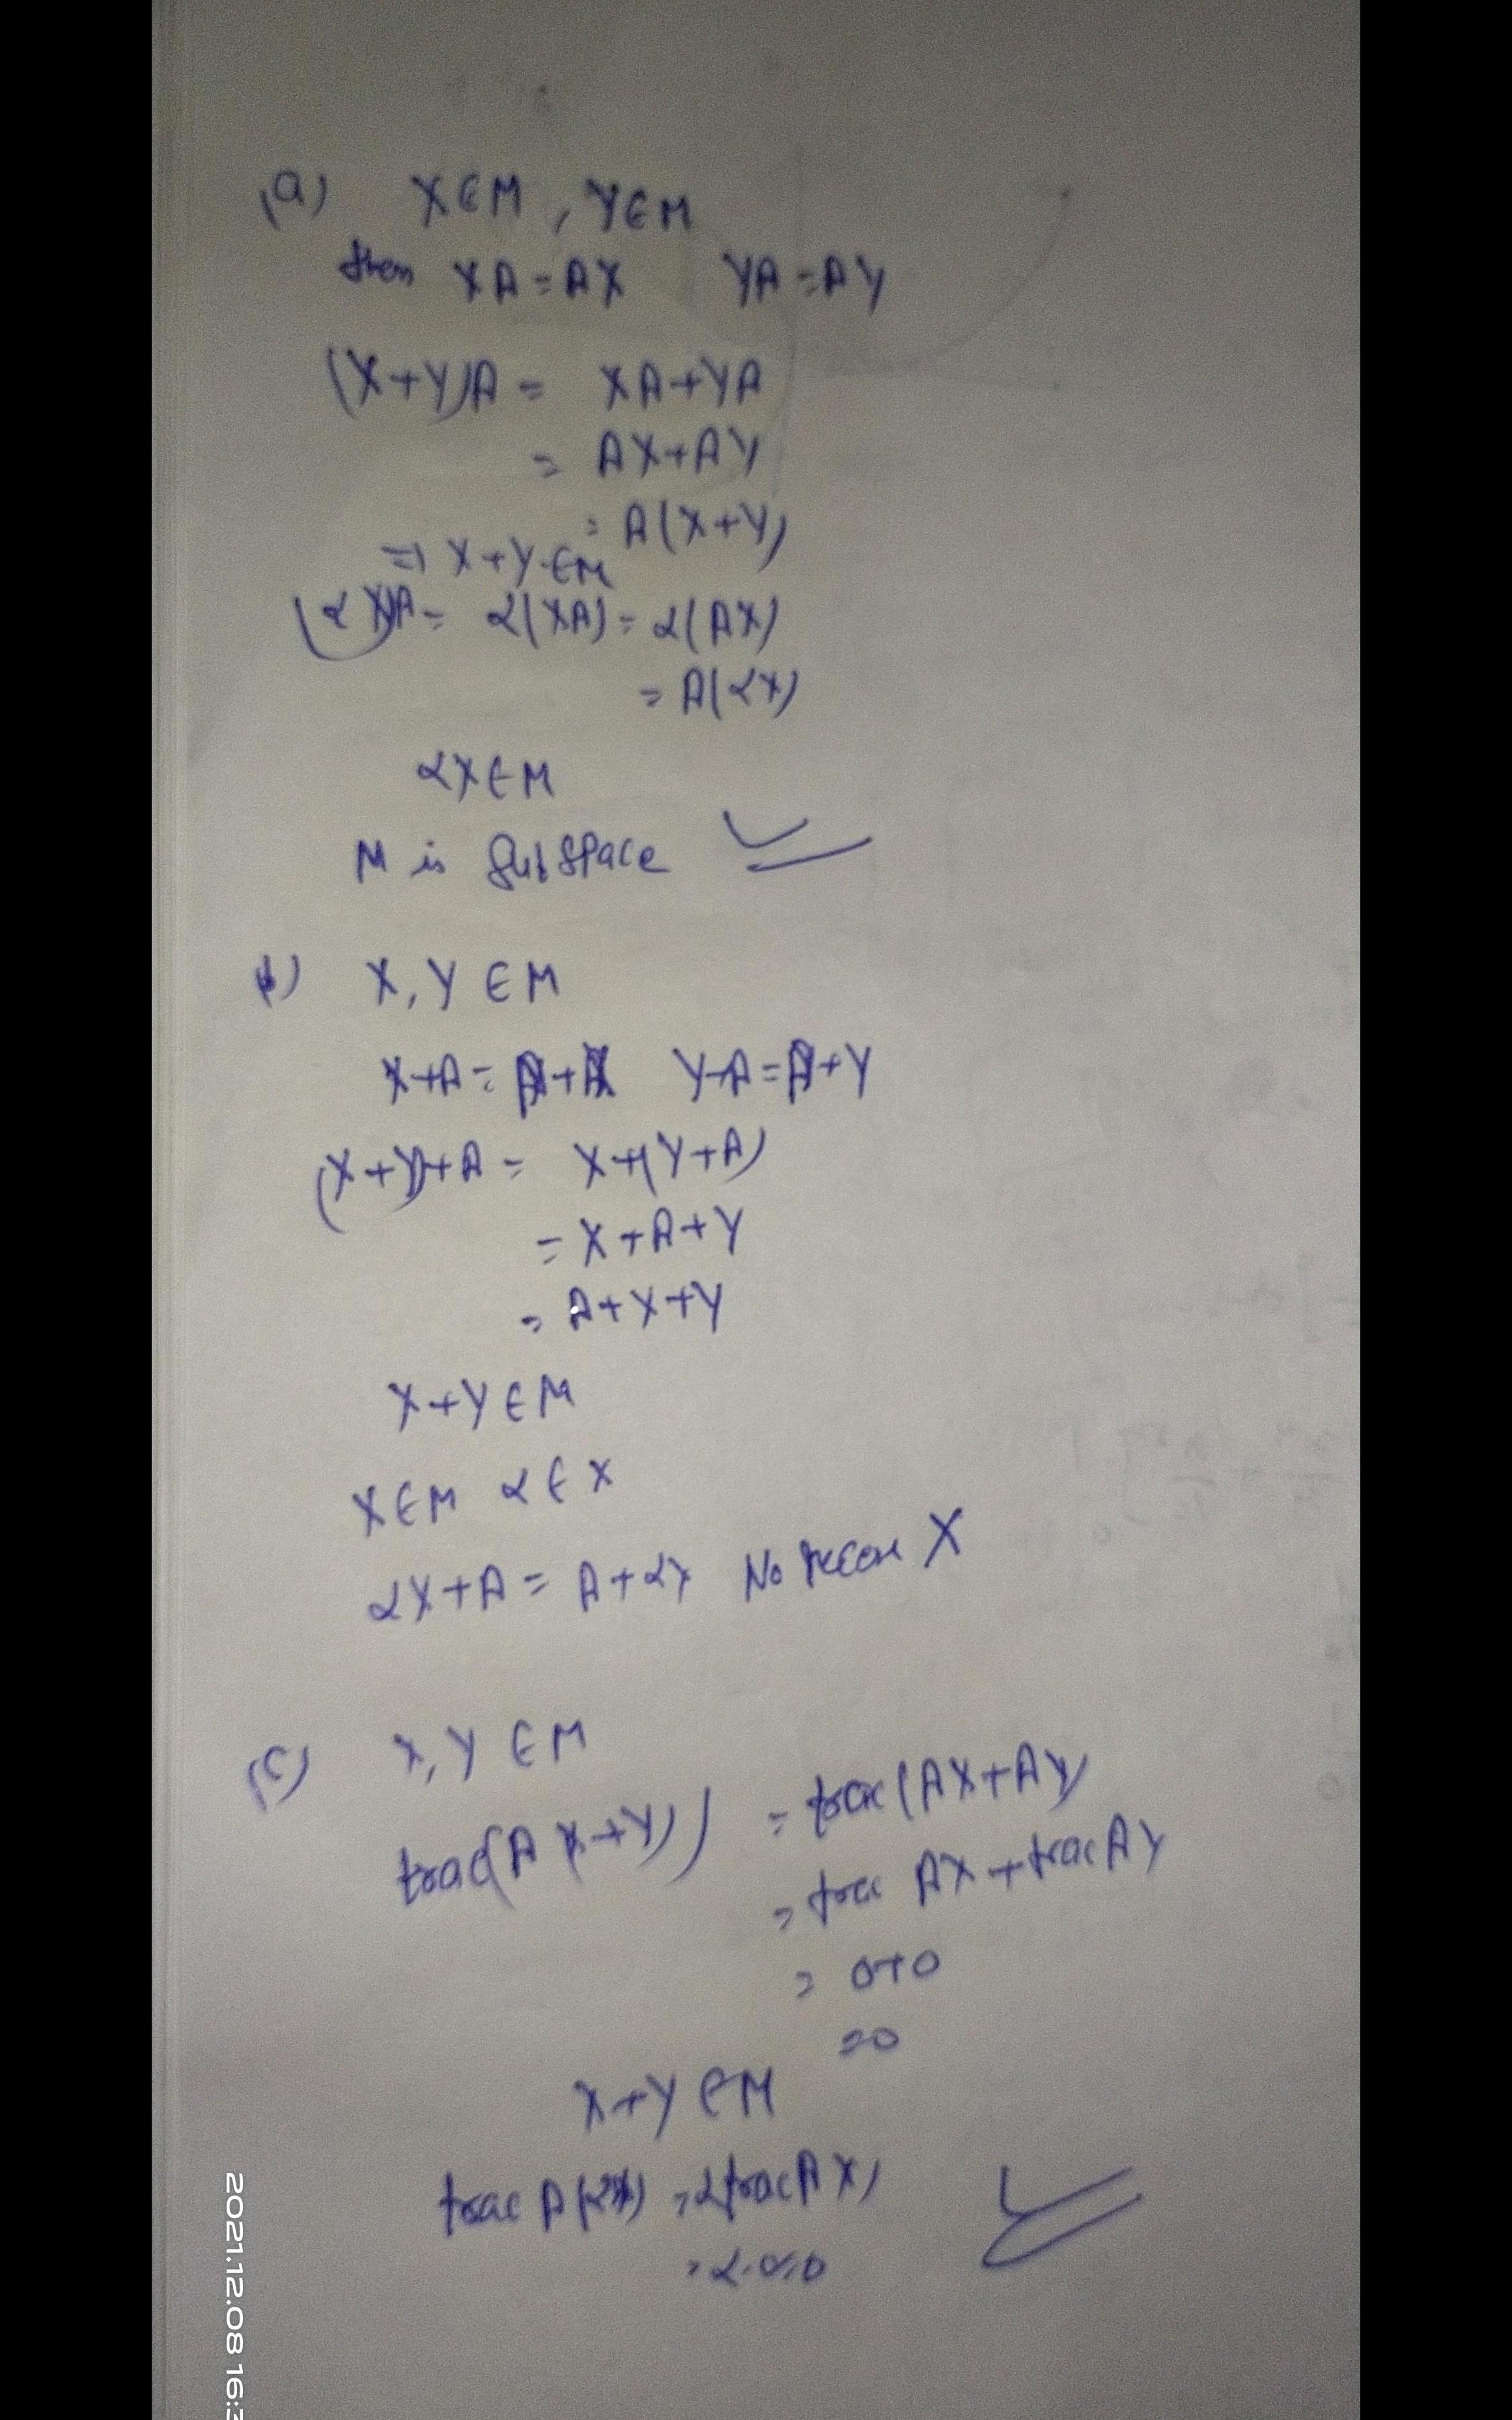 (a) X∈M, Y∈M
then XA=AX YA=AY
(X+Y)A = XA+YA
= AX+AY
= A(X+Y)
=> X+Y∈M
(αX)A = α(XA) = α(AX)
= A(αX)
αX∈M
M is Subspace
b) X, Y ∈ M
X+A = A+X Y+A = A+Y
(X+Y)+A = X+(Y+A)
= X+A+Y
= A+X+Y
X+Y∈M
X∈M α∈X
αX+A = A+αX No X
(c) X, Y ∈ M
trac(A X+Y)) = trac(AX+AY
= trac AX + trac AY
= 0+0
=0
X+Y∈M
trac A(αX) = α trac AX)
= α.0=0
2021.12.08 16:3